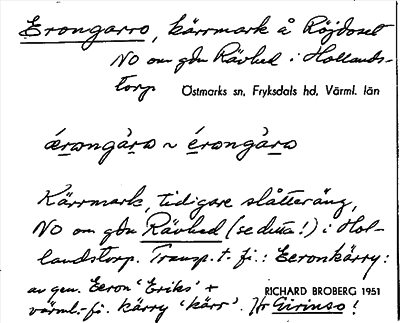 Erongarro, kärrmark å Röjdoset
NO om gdn Rävhed i Hollands-
torp Östmarks sn, Fryksdals hd, Värml. län
ǽrɷngàrɷ ~ érɷngàrɷ
Kärrmark, tidigare slåtteräng,
NO om gdn Rävhed (se detta!) i Hol-
landstorp. Transp. t. fi.: Eeronkärry:
av gen. Eeron 'Eriks' +
värml.-fi. kärry 'kärr'. Jfr Eirinso!
RICHARD BROBERG 1951